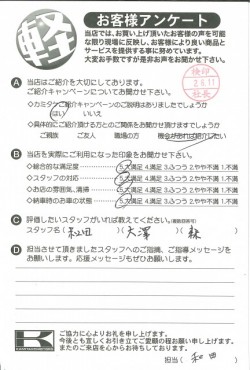 軽
お客様アンケート
当店では、お買い上げ頂いたお客様の声を可能
な限り現場に反映し、お客様により良い商品と
サービスを提供する事に努めています。
大変お手数ですが是非お声をお聞かせ下さい。
検印
社長
A 当店はご紹介を大切にしております。
ご紹介キャンペーンについてお聞かせ下さい。
ご紹介キャンペーンのご説明はありましたでしょうか
はい いいえ
◇具体的にご紹介頂ける方とのご関係をお聞かせ頂けますでしょうか
ご親族 ご友人 職場の方 機会があれば紹介したい
B 当店を実際にご利用になった印象をお聞かせ下さい。
◇総合的な満足度 5.大満足 4.満足 3.ふつう 2.やや不満 1.不満
◇スタッフの対応 5.大満足 4.満足 3.ふつう 2.やや不満 1.不満
◇お店の雰囲気、清掃 5.大満足 4.満足 3.ふつう 2.やや不満 1.不満
◇納車時のお車の状態 5.大満足 4.満足 3.ふつう 2.やや不満 1.不満
C 評価したいスタッフがいれば教えてください。(複数回答可)
スタッフ名( 和田 大澤 森 )
D 担当させて頂きましたスタッフへのご指摘、ご指導メッセージを
お願いします。応援メッセージもぜひお願いします。
K
ご協力に心よりお礼を申し上げます。
今後とも宜しくお引き立てご愛顧の程お願い申し上げます。
またのご来店を心からお待ちしております。
担当( 和田 )